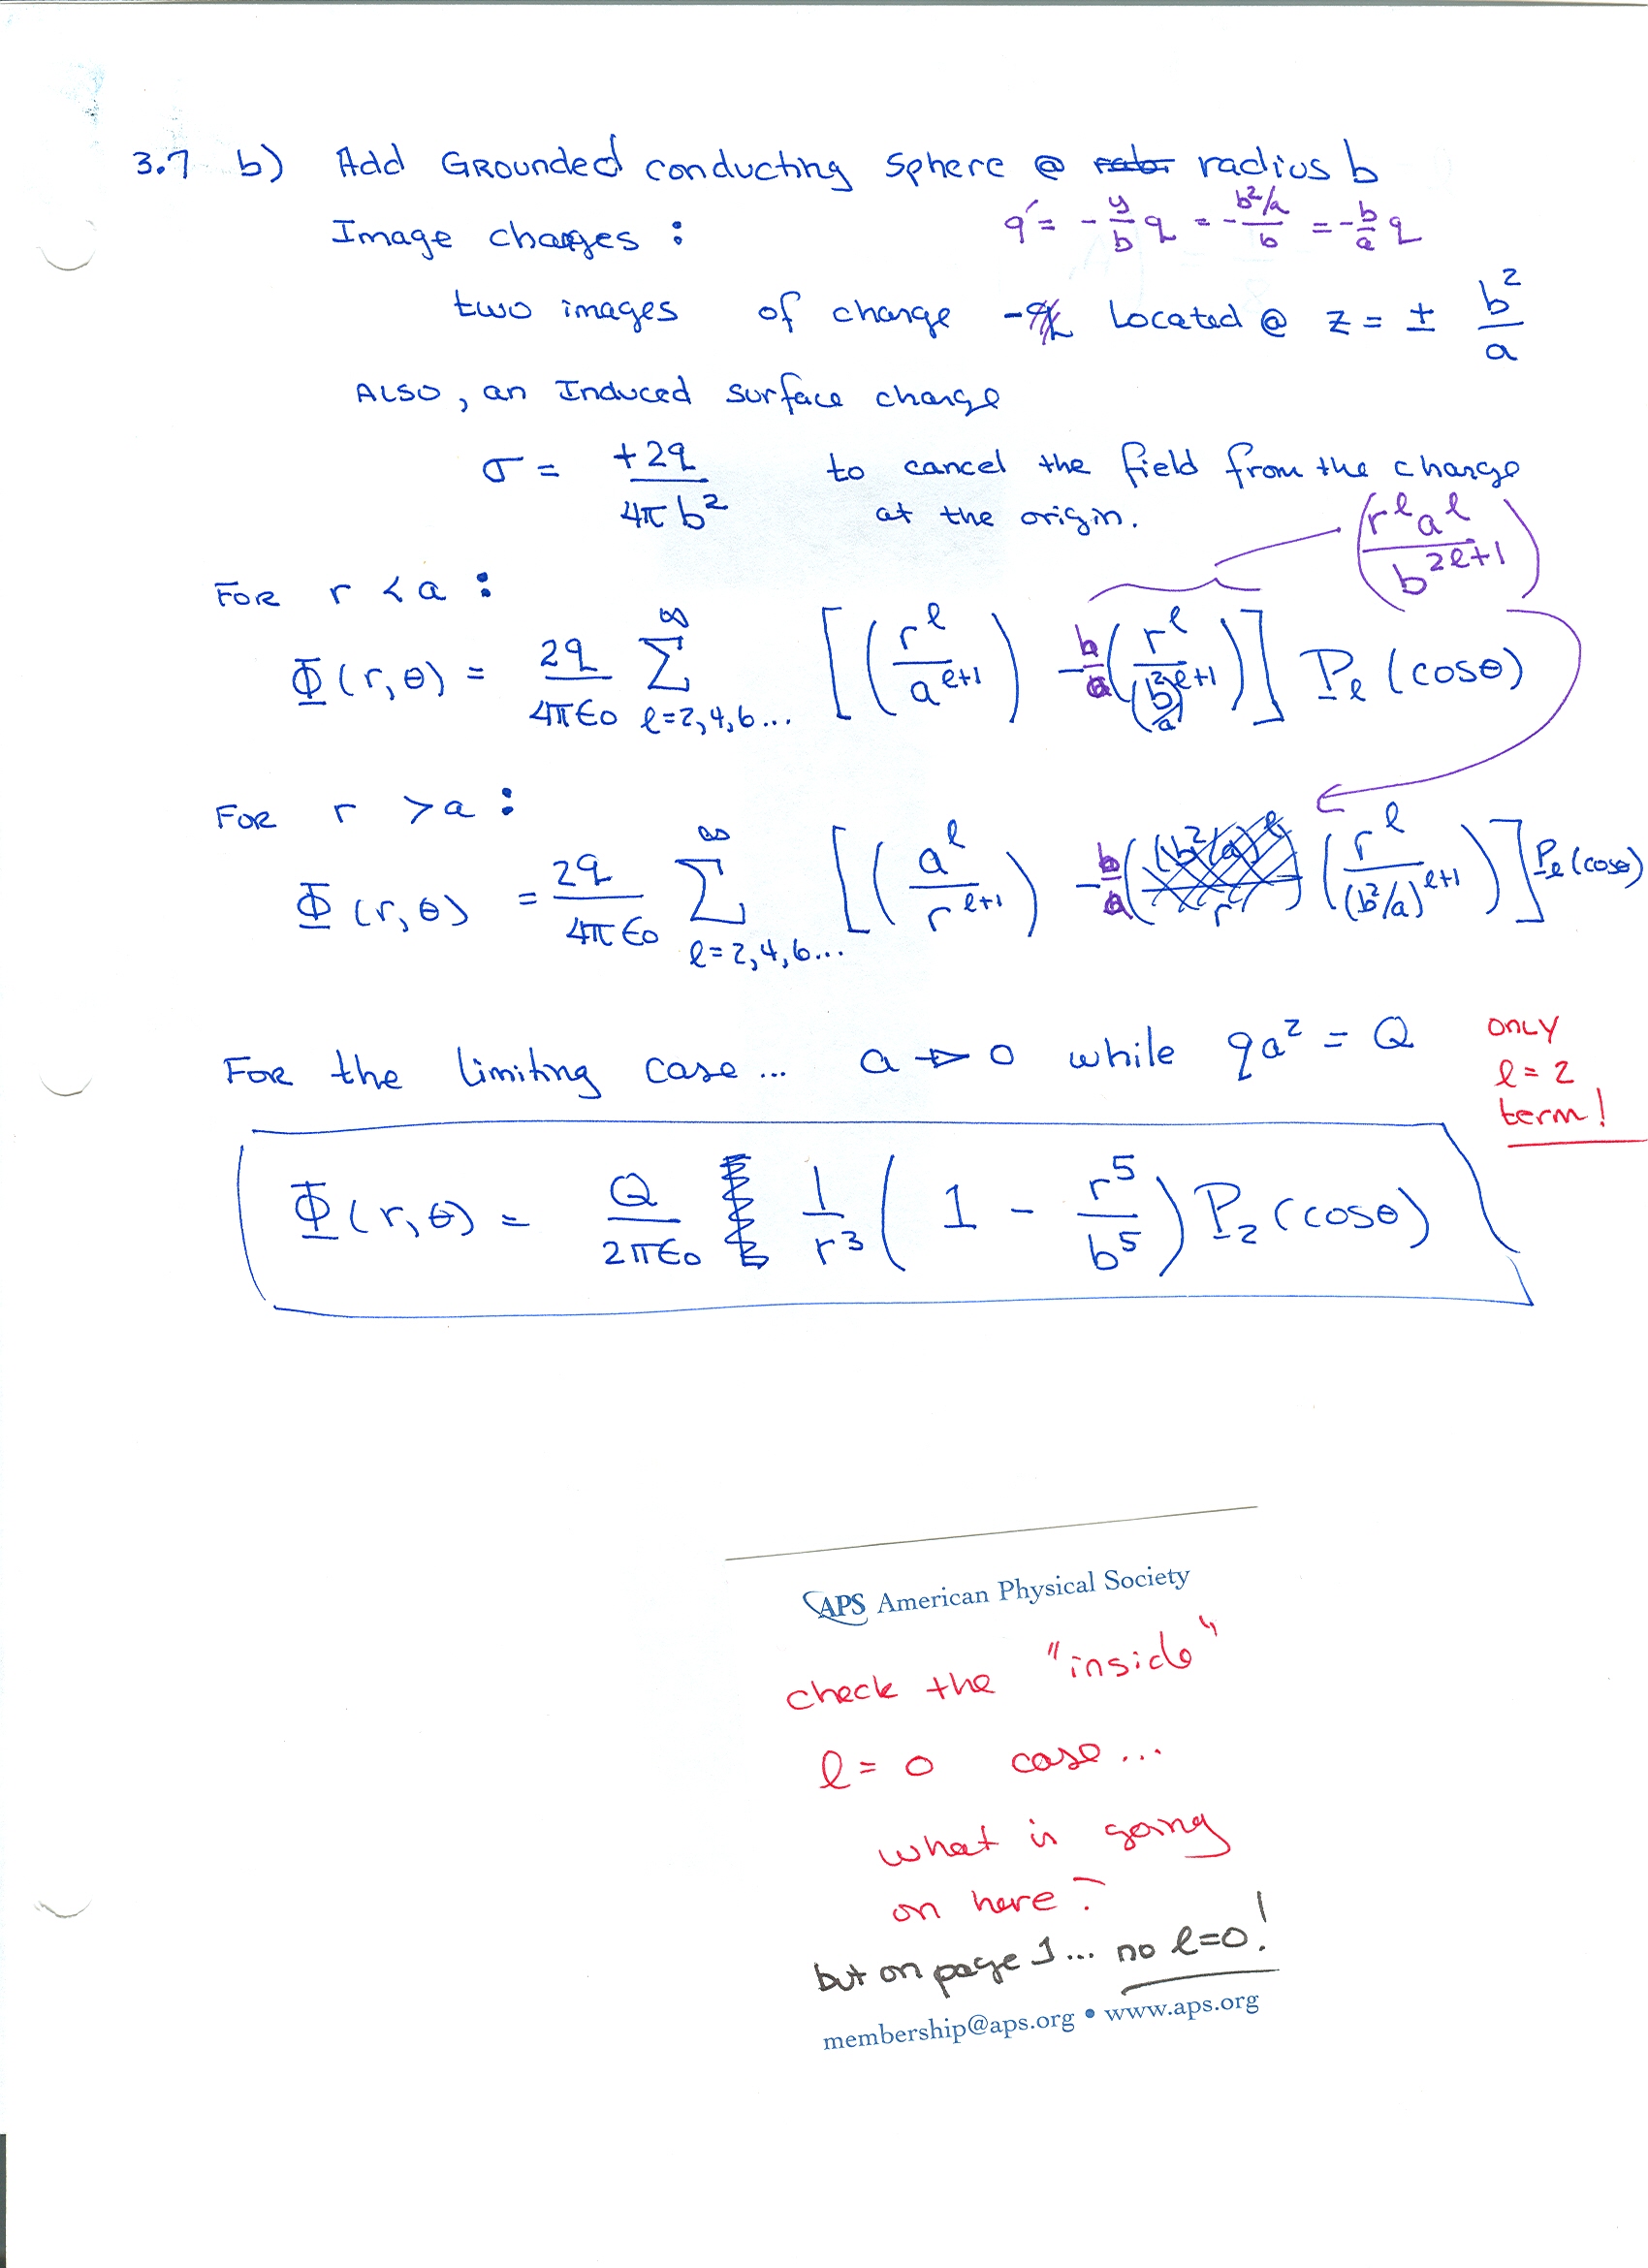 3.7 b) Add Grounded conducting sphere @ radius b
Image charges :
q' = - y/b q = - b²/a / b = - b/a q
two images of charge -q' Located @ z = ± b²/a
ALSO, an Induced surface charge
σ = +2q / 4πb² to cancel the field from the charge
at the origin.
(r^ℓ a^ℓ / b^{2ℓ+1})
For r < a :
Φ(r,θ) = 2q/4πε₀ Σ_{ℓ=2,4,6...}^∞ [ (r^ℓ / a^{ℓ+1}) - b/a ( r^ℓ / (b²/a)^{ℓ+1} ) ] P_ℓ (cosθ)
For r > a :
Φ(r,θ) = 2q/4πε₀ Σ_{ℓ=2,4,6...}^∞ [ ( a^ℓ / r^{ℓ+1} ) - b/a ( r^ℓ / (b²/a)^{ℓ+1} ) ] P_ℓ (cosθ)
For the limiting case... a → 0 while qa² = Q
only
ℓ = 2
term!
Φ(r,θ) = Q/2πε₀ 1/r³ ( 1 - r⁵/b⁵ ) P₂ (cosθ)
APS American Physical Society
check the "inside"
ℓ = 0 case...
what is going
on here?
but on page 1... no ℓ=0!
membership@aps.org • www.aps.org